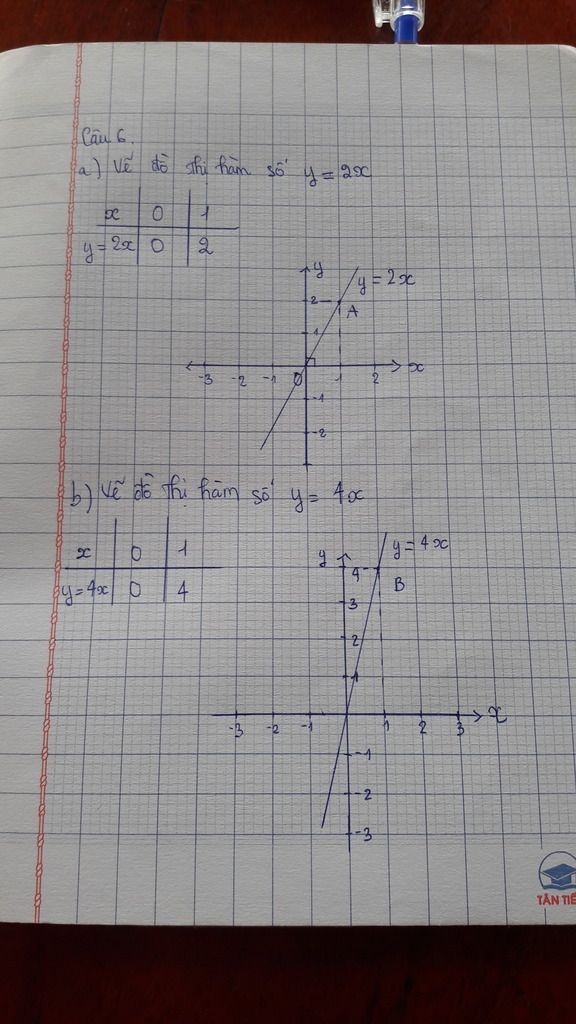 Câu 6.
a) Vẽ đồ thị hàm số y = 2x
x 0 1
y = 2x 0 2
y
y = 2x
2
A
1
-3 -2 -1 0 1 2 x
-1
-2
b) Vẽ đồ thị hàm số y = 4x
x 0 1
y = 4x 0 4
y
y = 4x
4
B
3
2
1
-3 -2 -1 1 2 3 x
-1
-2
-3